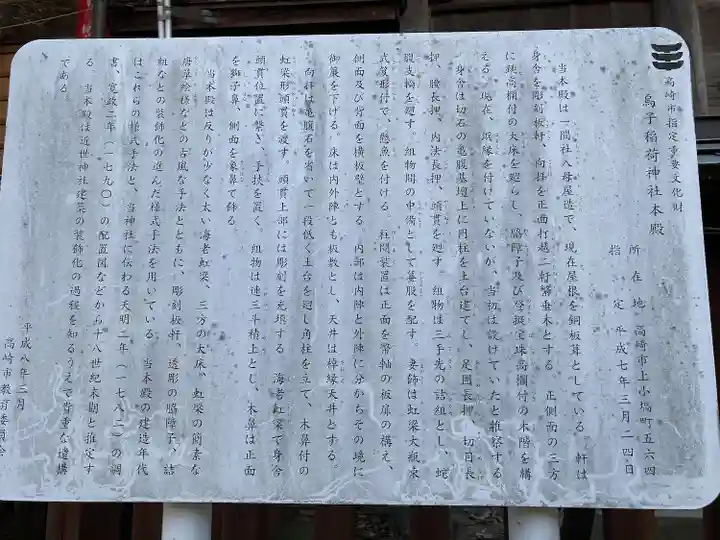 高崎市指定重要文化財
烏子稲荷神社本殿
所在地 高崎市上小塙町五六四
指定 平成七年三月二四日
当本殿は一間社入母屋造で、現在屋根を銅板葺としている。軒は
身舎を彫刻板軒、向拝を正面打越二軒繁垂木とする。正側面の三方
に跳高欄付の大床を廻らし、脇障子及び登擬宝珠高欄付の木階を構
える。現在、煽縁を付けていないが、当初は設けていたと推察する
身舎は切石の亀腹基壇上に円柱を土台建てし、足固長押、切目長
押、腰長押、内法長押、頭貫を廻す。組物は三手先の詰組とし、蛇
腹支輪を廻す。組物間の中備として蟇股を配す。妻飾は虹梁大瓶束
式笈形付で、懸魚を付ける。柱間装置は正面を幣軸の板扉の構え、
側面及び背面を横板壁とする。内部は内陣と外陣に分からその境に
御簾を下げる。床は内外陣とも板敷とし、天井は棹縁天井とする。
向拝は亀腹石を省いて一段低く土台を廻し角柱を立て、木鼻付の
虹梁形頭貫を渡す。頭貫上部には彫刻を充填する。海老虹梁で身舎
頭貫位置に繋ぎ、手挟を置く。組物は連三斗積上とし、木鼻は正面
を獅子鼻、側面を象鼻で飾る。
当本殿は反りが少なく太い海老虹梁、三方の大床、虹梁の簡素な
唐草絵様などの古風な手法とともに、彫刻板軒、透彫の脇障子、詰
組などの装飾化の進んだ様式手法を用いている。当本殿の建造年代
はこれらの様式手法と、当神社に伝わる天明二年(一七八二)の調
書、寛政二年(一七九〇)の配置図などから十八世紀末期と推定す
る。当本殿は近世神社建築の装飾化の過程を知るうえで貴重な遺構
である
平成八年三月
高崎市教育委員会